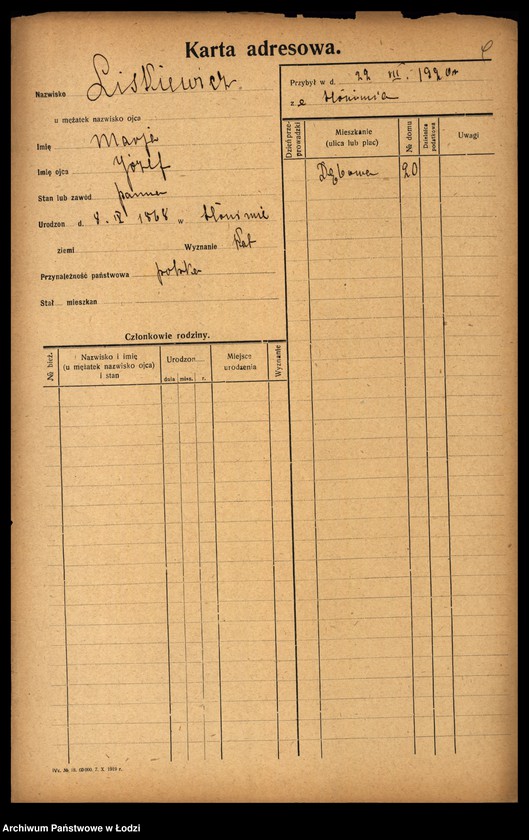 Karta adresowa.
Nazwisko Liskiewicz
u mężatek nazwisko ojca
Imię Marja
Imię ojca Józef
Stan lub zawód panna
Urodzon d. 8. IX 1868 w Słonimie
ziemi Wyznanie kat
Przynależność państwowa polska
Stał. mieszkan
Przybył w d. 22 VII. 1920
z e Słonimia
Dzień przeprowadzki
Mieszkanie
(ulica lub plac)
№ domu
Dzielnica podatkowa
Uwagi
Dębowa 20
Członkowie rodziny.
№ bież.
Nazwisko i imię
(u mężatek nazwisko ojca)
i stan
Urodzon
dnia mies. r.
Miejsce
urodzenia
Wyznanie
Archiwum Państwowe w Łodzi